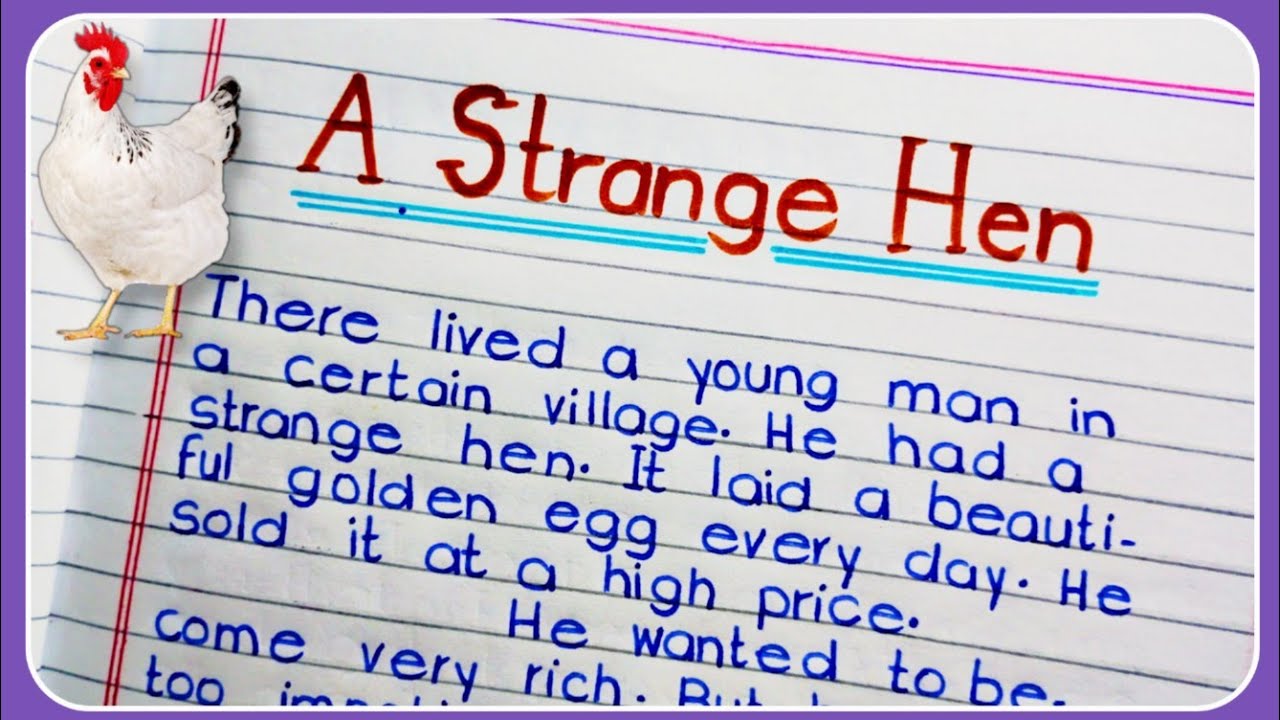 A Strange Hen
There lived a young man in
a certain village. He had a
strange hen. It laid a beauti-
ful golden egg every day. He
sold it at a high price.
He wanted to be.
come very rich. But
too